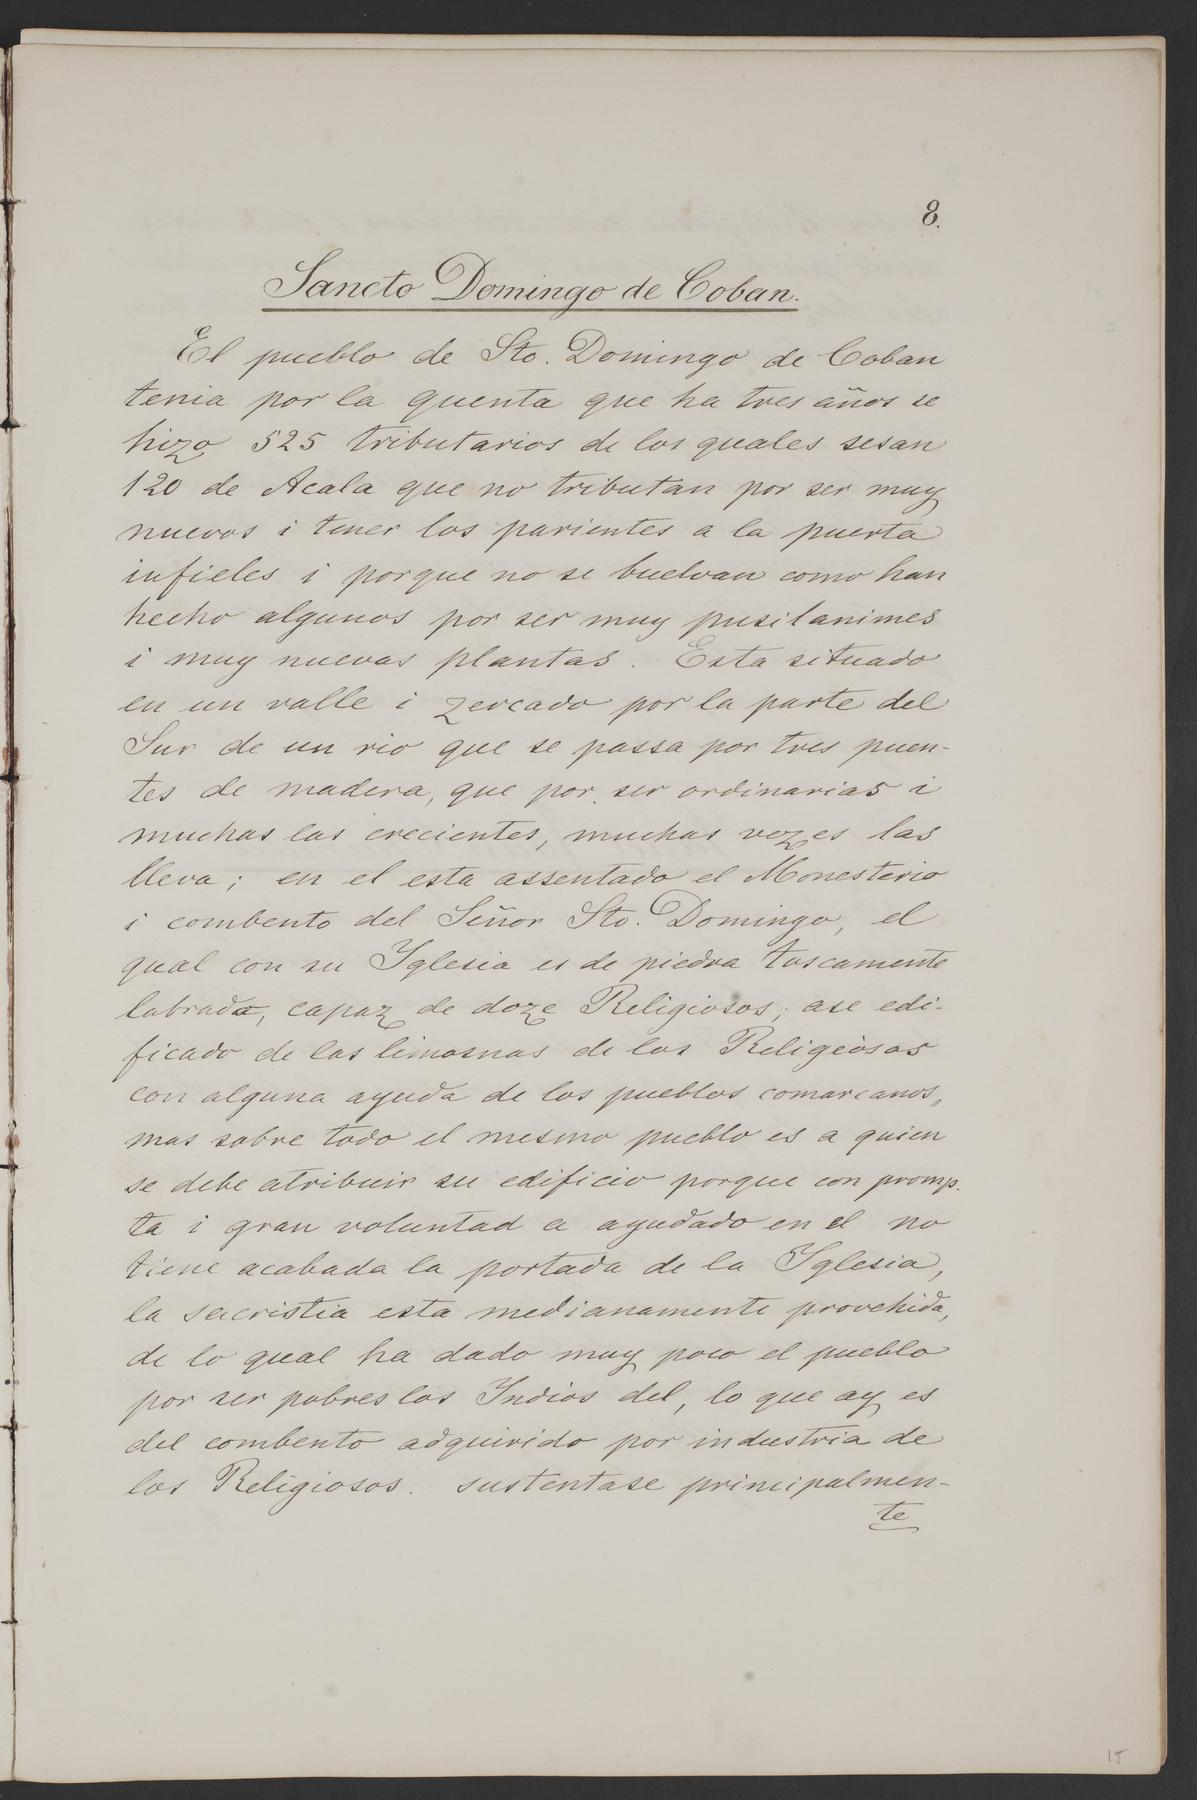 8.
Sancto Domingo de Coban.
El pueblo de Sto. Domingo de Coban
tenia por la quenta que ha tres años se
hizo 525 tributarios de los quales sesan
120 de Acala que no tributan por ser muy
nuevos i tener los parientes a la puerta
infieles i porque no se buelvan como han
hecho algunos por ser muy pusilanimes
i muy nuevas plantas. Esta situado
en un valle i zercado por la parte del
Sur de un rio que se passa por tres puen-
tes de madera, que por ser ordinarias i
muchas las crecientes, muchas vezes las
lleva; en el esta assentado el Monesterio
i combento del Señor Sto. Domingo, el
qual con su Yglesia es de piedra toscamente
labrada, capaz de doze Religiosos; ase edi-
ficado de las limosnas de los Religiosos
con alguna ayuda de los pueblos comarcanos,
mas sobre todo el mesmo pueblo es a quien
se debe atribuir su edificio porque con promp-
ta i gran voluntad a ayudado en el no
tiene acabada la portada de la Yglesia,
la sacristia esta medianamente provehida,
de lo qual ha dado muy poco el pueblo
por ser pobres los Yndios del, lo que ay es
del combento adquirido por industria de
los Religiosos. sustentase principalmen-
te
15